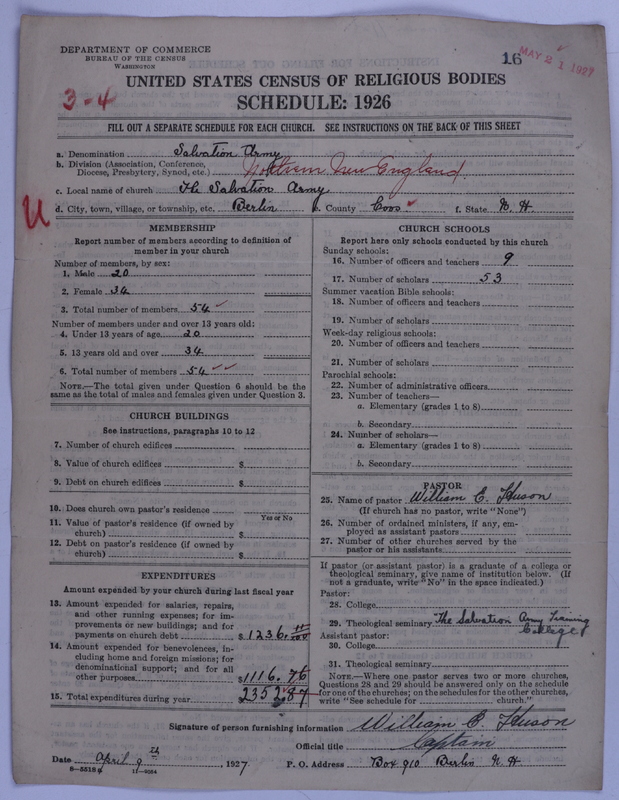 DEPARTMENT OF COMMERCE
BUREAU OF THE CENSUS
WASHINGTON
16
MAY 21 1927
UNITED STATES CENSUS OF RELIGIOUS BODIES
3-4
SCHEDULE: 1926
FILL OUT A SEPARATE SCHEDULE FOR EACH CHURCH. SEE INSTRUCTIONS ON THE BACK OF THIS SHEET
a. Denomination Salvation Army
b. Division (Association, Conference, Diocese, Presbytery, Synod, etc.) Northern New England
c. Local name of church The Salvation Army
U
d. City, town, village, or township, etc. Berlin e. County Coos f. State N. H.
MEMBERSHIP
Report number of members according to definition of
member in your church
Number of members, by sex:
1. Male 20
2. Female 34
3. Total number of members 54
Number of members under and over 13 years old:
4. Under 13 years of age 20
5. 13 years old and over 34
6. Total number of members 54
NOTE.—The total given under Question 6 should be the
same as the total of males and females given under Question 3.
CHURCH BUILDINGS
See instructions, paragraphs 10 to 12
7. Number of church edifices
8. Value of church edifices $
9. Debt on church edifices $
10. Does church own pastor's residence
Yes or No
11. Value of pastor's residence (if owned by
church) $
12. Debt on pastor's residence (if owned by
church) $
EXPENDITURES
Amount expended by your church during last fiscal year
13. Amount expended for salaries, repairs,
and other running expenses; for im-
provements or new buildings; and for
payments on church debt $ 1236.
14. Amount expended for benevolences, in-
cluding home and foreign missions; for
denominational support; and for all
other purposes $ 1116.76
15. Total expenditures during year $ 2352 87
CHURCH SCHOOLS
Report here only schools conducted by this church
Sunday schools:
16. Number of officers and teachers 9
17. Number of scholars 53
Summer vacation Bible schools:
18. Number of officers and teachers
19. Number of scholars
Week-day religious schools:
20. Number of officers and teachers
21. Number of scholars
Parochial schools:
22. Number of administrative officers
23. Number of teachers—
a. Elementary (grades 1 to 8)
b. Secondary
24. Number of scholars—
a. Elementary (grades 1 to 8)
b. Secondary
PASTOR
25. Name of pastor William E.
(If church has no pastor, write "None")
26. Number of ordained ministers, if any, em-
ployed as assistant pastors
27. Number of other churches served by the
pastor or his assistants
If pastor (or assistant pastor) is a graduate of a college or
theological seminary, give name of institution below. (If
not a graduate, write "No" in the space indicated.)
Pastor:
28. College
29. Theological seminary The Salvation Army Training College
Assistant pastor:
30. College
31. Theological seminary
NOTE.—Where one pastor serves two or more churches,
Questions 28 and 29 should be answered only on the schedule
for one of the churches; on the schedules for the other churches,
write "See schedule for church."
Signature of person furnishing information William E.
Official title Captain
Date April 9th, 1927. P. O. Address Box 910 Berlin N. H.
8—5518a 11—9054